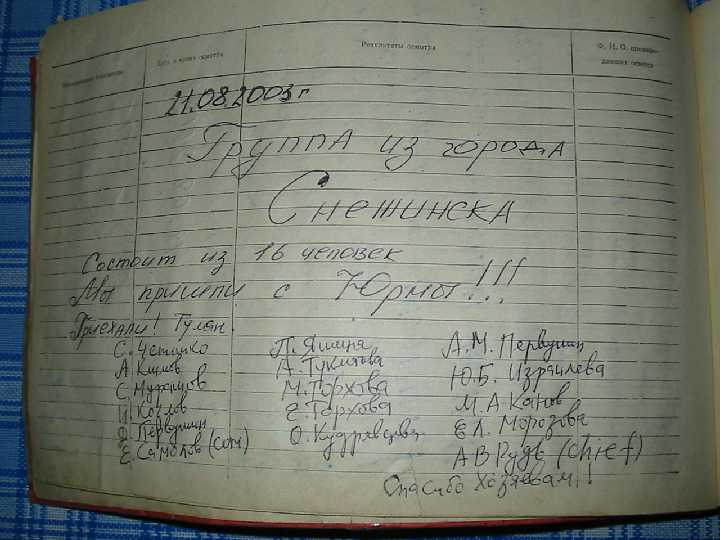 Дата и время осмотра
Результаты осмотра
Ф. И. О. производившего осмотр
21.08.2003г
Группа из города
Снежинска
Состоит из 16 человек
Мы пришли с Юрмы!!!
Приехали! Гуляй.
С.
А. Климов
С.
И. Козлов
Я. Первушин
Е. Самохов (com)
П. Яшина
А. Тукитова
М. Горхова
Е. Горхова
О. Кудрявцева
А.М. Первушин
Ю.Б. Израилева
М.А Канов
Е.Л. Морозова
А В Рудь (chief)
Спасибо хозяевам!